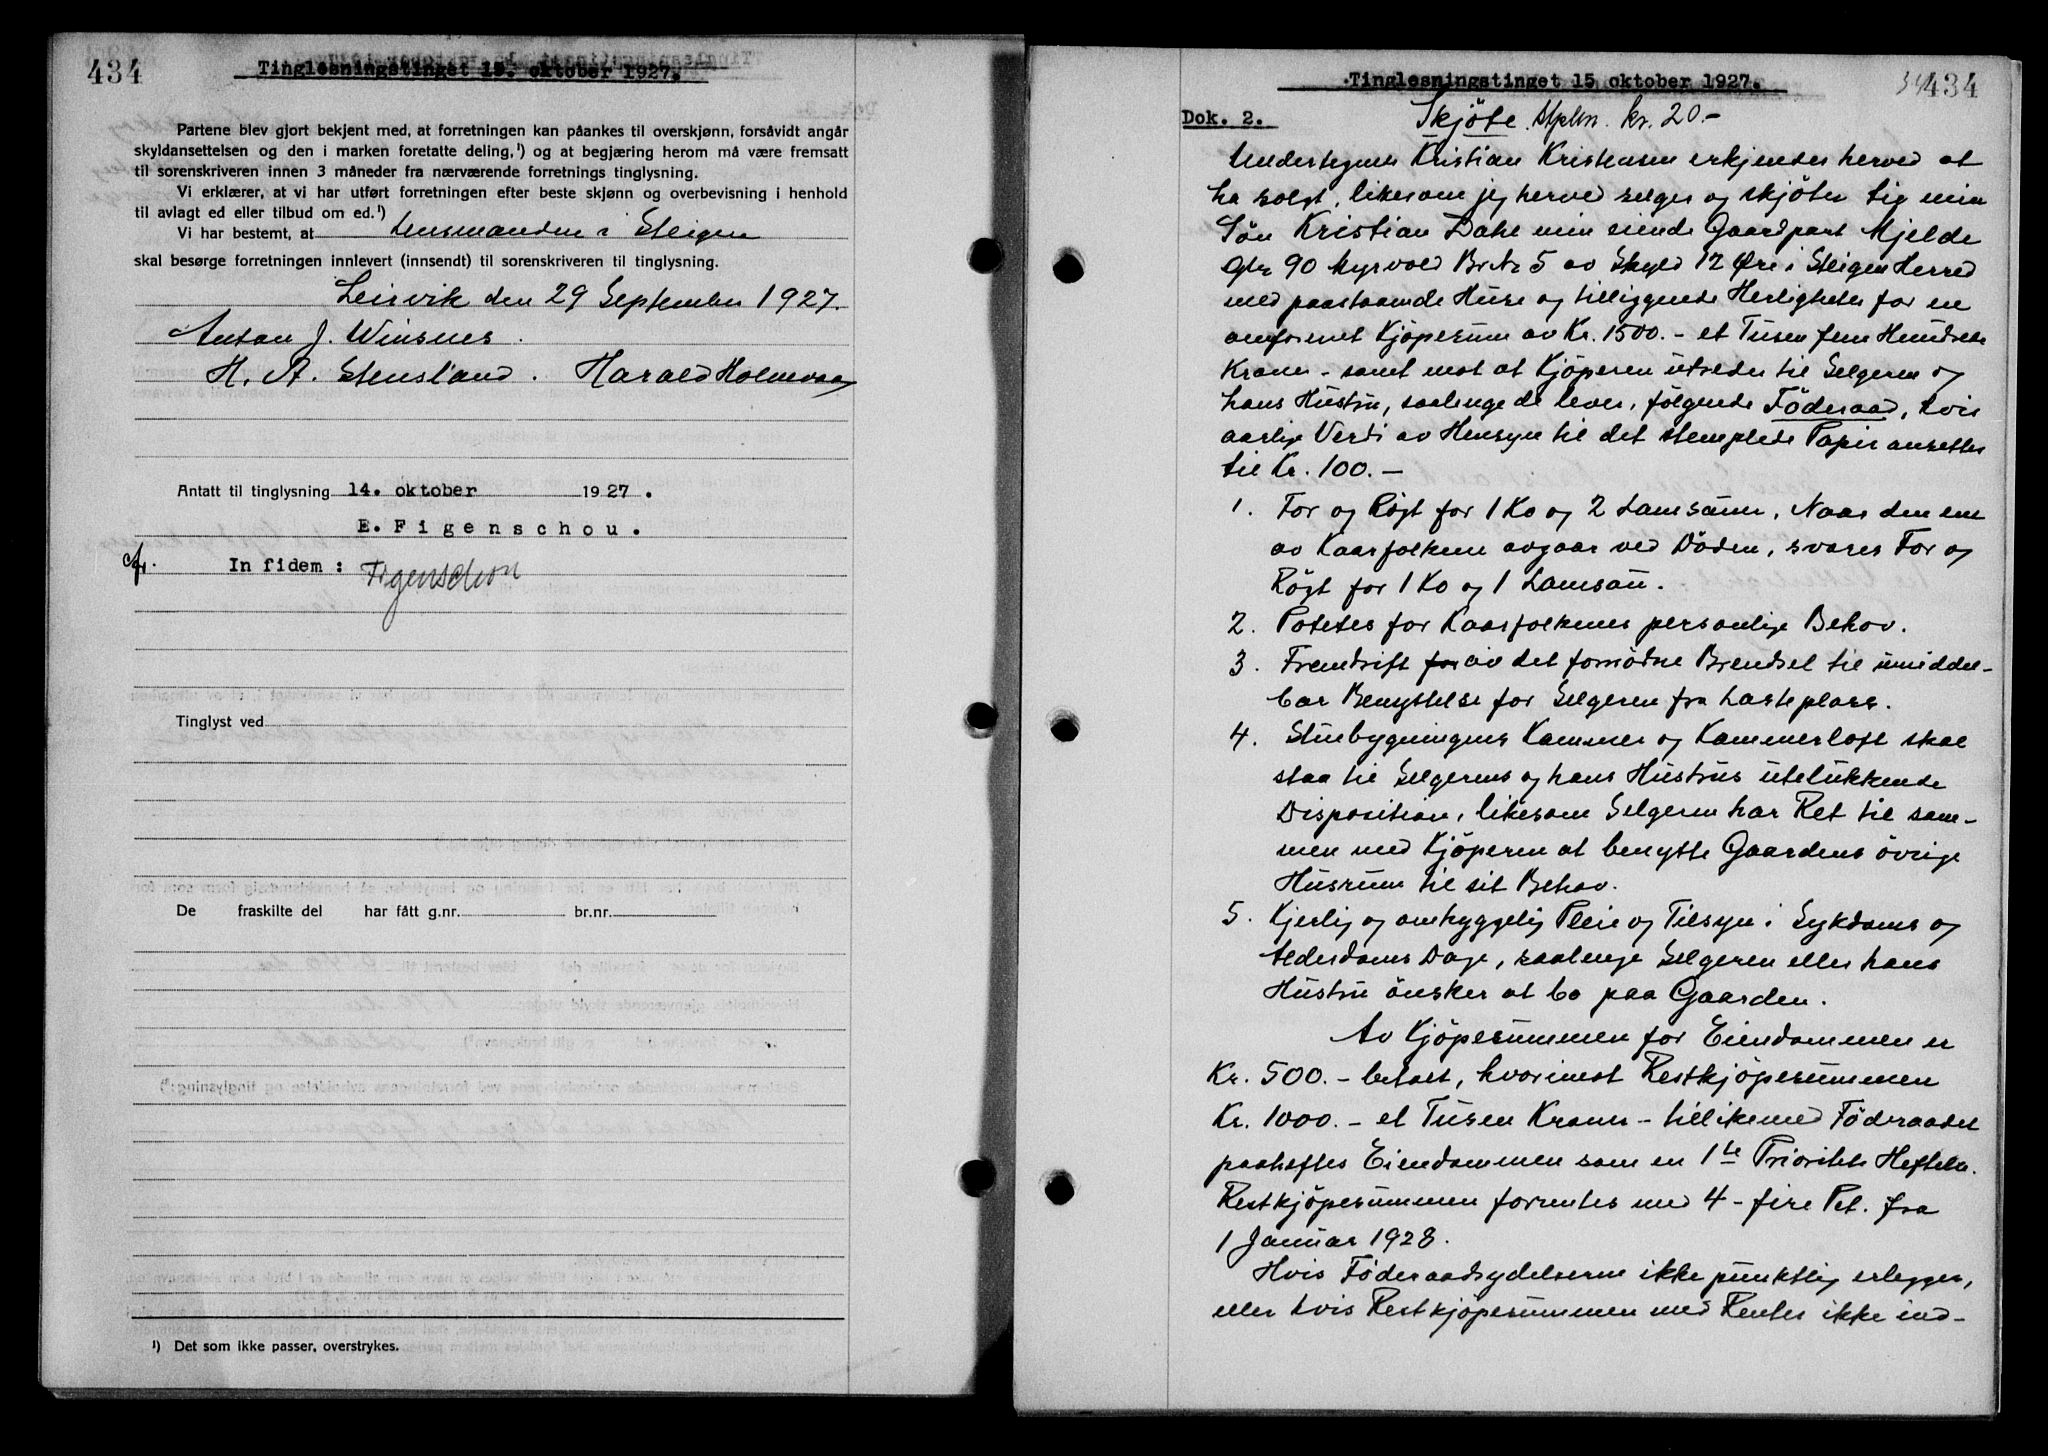 434
Tinglesningstinget 15. oktober 1927.
Partene blev gjort bekjent med, at forretningen kan påankes til overskjønn, forsåvidt angår
skyldansettelsen og den i marken foretatte deling,¹) og at begjæring herom må være fremsatt
til sorenskriveren innen 3 måneder fra nærværende forretnings tinglysning.
Vi erklærer, at vi har utført forretningen efter beste skjønn og overbevisning i henhold
til avlagt ed eller tilbud om ed.¹)
Vi har bestemt, at Lensmanden i Steigen
skal besørge forretningen innlevert (innsendt) til sorenskriveren til tinglysning.
Leirvik den 29 September 1927.
Anton J. Winsnes.
H. A. Stensland. Harald Holmvaag
Antatt til tinglysning 14. oktober 1927.
E. Figenschou.
In fidem: Figenschou
Tinglyst ved
De fraskilte del har fått g.nr. br.nr.
¹) Det som ikke passer, overstrykes.
434
Tinglesningstinget 15 oktober 1927.
Dok. 2. Skjöte. Stpltn. kr. 20.-
Undertegnede Kristian Kristensen erkjender herved at
ha solgt, likesom jeg herved selger og skjöter til min
Sön Kristian Dahl min eiende Gaardpart Mjelde
Gnr 90 Myrvold Br.Nr 5 av Skyld 12 Öre i Steigen Herred
med paastaaende Huse og tilliggende Herligheter for en
omforenet Kjöpesum av Kr. 1500.- et Tusen fem Hundrede
Kroner - samt mot at Kjöperen utreder til Selgeren og
hans Hustru, saalenge de lever, følgende Föderaad, hvis
aarlige Verdi av Hensyn til det stemplede Papir ansettes
til Kr. 100.-
1. For og Rögt for 1 Ko og 2 Lamsauer. Naar den ene
av Kaarfolkene avgaar ved Döden, svares For og
Rögt for 1 Ko og 1 Lamsau.
2. Poteter for Kaarfolkenes personlige Behov.
3. Fremdrift for av det fornödne Brendsel til umiddel-
bar Benyttelse for Selgeren fra Lasteplass.
4. Stuebygningens Kammer og Kammerloft skal
staa til Selgerens og hans Hustrus utelukkende
Disposition, likesom Selgeren har Ret til sam-
men med Kjöperen at benytte Gaardens övrige
Husrum til sit Behov.
5. Kjerlig og omhyggelig Pleie og Tilsyn i Sykdoms og
Alderdoms Dage, saalenge Selgeren eller hans
Hustru önsker at bo paa Gaarden.
Av Kjöpesummen for Eiendommen er
Kr. 500.- betalt, hvorimot Restkjöpesummen
Kr. 1000.- et Tusen Kroner - tillikemed Föderaadet
paaheftes Eiendommen som en 1te Prioritets Heftelse.
Restkjöpesummen forrentes med 4 - fire Pct. fra
1 Januar 1928.
Hvis Föderaadsydelserne ikke punktlig erlegges,
eller hvis Restkjöpesummen med Renter ikke ind-